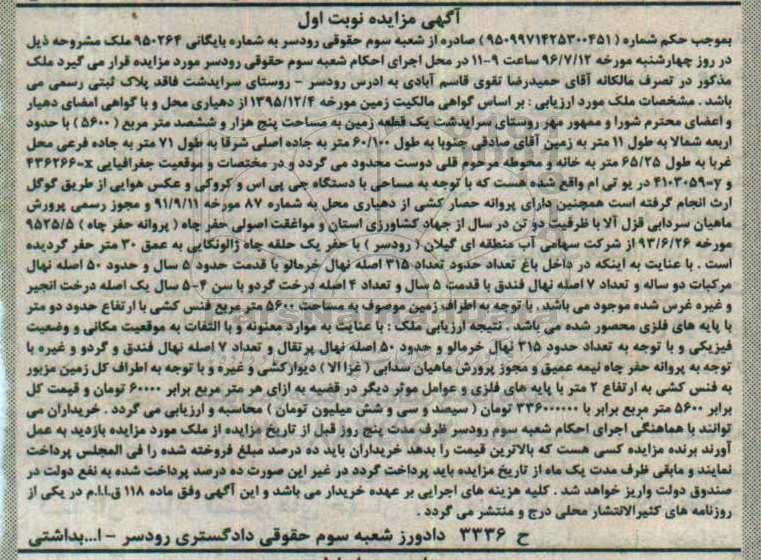 آگهی مزایده نوبت اول
بموجب حکم شماره ( ۹۵۰۹۹۷۱۴۲۵۳۰۰۴۵۱ ) صادره از شعبه سوم حقوقی رودسر به شماره بایگانی ۹۵۰۲۶۴ ملک مشروحه ذیل
در روز چهارشنبه مورخه ۹۶/۷/۱۲ ساعت ۹-۱۱ در محل اجرای احکام شعبه سوم حقوقی رودسر مورد مزایده قرار می گیرد ملک
مذکور در تصرف مالکانه آقای حمیدرضا تقوی قاسم آبادی به ادرس رودسر - روستای سرایدشت فاقد پلاک ثبتی رسمی می
باشد . مشخصات ملک مورد ارزیابی : بر اساس گواهی مالکیت زمین مورخه ۱۳۹۵/۱۲/۴ از دهیاری محل و با گواهی امضای دهیار
و اعضای محترم شورا و ممهور مهر روستای سرایدشت یک قطعه زمین به مساحت پنج هزار و ششصد متر مربع ( ۵۶۰۰ ) با حدود
اربعه شمالا به طول ۱۱ متر به زمین آقای صادقی جنوبا به طول ۶۰/۱۰۰ متر به جاده اصلی شرقا به طول ۷۱ متر به جاده فرعی محل
غربا به طول ۶۵/۲۵ متر به خانه و محوطه مرحوم قلی دوست محدود می گردد و در مختصات و موقعیت جغرافیایی x=۴۳۶۲۶۶
و y=۴۱۰۳۰۵۹ در یو تی ام واقع شده هست که با توجه به مساحی با دستگاه جی پی اس و کروکی و عکس هوایی از طریق گوگل
ارث انجام گرفته است همچنین دارای پروانه حصار کشی از دهیاری محل به شماره ۸۷ مورخه ۹۱/۹/۱۱ و مجوز رسمی پرورش
ماهیان سردابی قزل آلا با ظرفیت دو تن در سال از جهاد کشاورزی استان و مواغقت اصولی حفر چاه ( پروانه حفر چاه ) ۹۵۲۵/۵
مورخه ۹۳/۶/۲۶ از شرکت سهامی آب منطقه ای گیلان ( رودسر ) با حفر یک حلقه چاه ژالونکایی به عمق ۳۰ متر حفر گردیده
است . با عنایت به اینکه در داخل باغ تعداد حدود تعداد ۳۱۵ اصله نهال خرمالو با قدمت حدود ۵ سال و حدود ۵۰ اصله نهال
مرکبات دو ساله و تعداد ۷ اصله نهال فندق با قدمت ۵ سال و تعداد ۴ اصله درخت گردو با سن ۴-۵ سال یک اصله درخت انجیر
و غیره غرس شده موجود می باشد . با توجه به اطراف زمین موصوف به مساحت ۵۶۰۰ متر مربع فنس کشی با ارتفاع حدود دو متر
با پایه های فلزی محصور شده می باشد . نتیجه ارزیابی ملک : با عنایت به موارد معنونه و با التفات به موقعیت مکانی و وضعیت
فیزیکی و با توجه به تعداد حدود ۳۱۵ نهال خرمالو و حدود ۵۰ اصله نهال پرتقال و تعداد ۷ اصله نهال فندق و گردو و غیره با
توجه به پروانه حفر چاه نیمه عمیق و مجوز پرورش ماهیان سدابی ( غزا الا ) دیوارکشی و غیره و با توجه به اطراف کل زمین مزبور
به فنس کشی به ارتفاع ۲ متر با پایه های فلزی و عوامل موثر دیگر در قضیه به ازای هر متر مربع برابر ۶۰۰۰۰ تومان و قیمت کل
برابر ۵۶۰۰ متر مربع برابر با ۳۳۶۰۰۰۰۰۰ تومان ( سیصد و سی و شش میلیون تومان ) محاسبه و ارزیابی می گردد . خریداران می
توانند با هماهنگی اجرای احکام شعبه سوم رودسر ظرف مدت پنج روز قبل از تاریخ مزایده از ملک مورد مزایده بازدید به عمل
آورند برنده مزایده کسی هست که بالاترین قیمت را بدهد خریداران باید ده درصد مبلغ فروخته شده را فی المجلس پرداخت
نمایند و مابقی ظرف مدت یک ماه از تاریخ مزایده باید پرداخت گردد در غیر این صورت ده درصد پرداخت شده به نفع دولت در
صندوق دولت واریز خواهد شد . کلیه هزینه های اجرایی بر عهده خریدار می باشد و این آگهی وفق ماده ۱۱۸ ق.ا.ا.م در یکی از
روزنامه های کثیرالانتشار محلی درج و منتشر می گردد .
ح ۳۳۳۶ دادورز شعبه سوم حقوقی دادگستری رودسر - ا...بداشتی